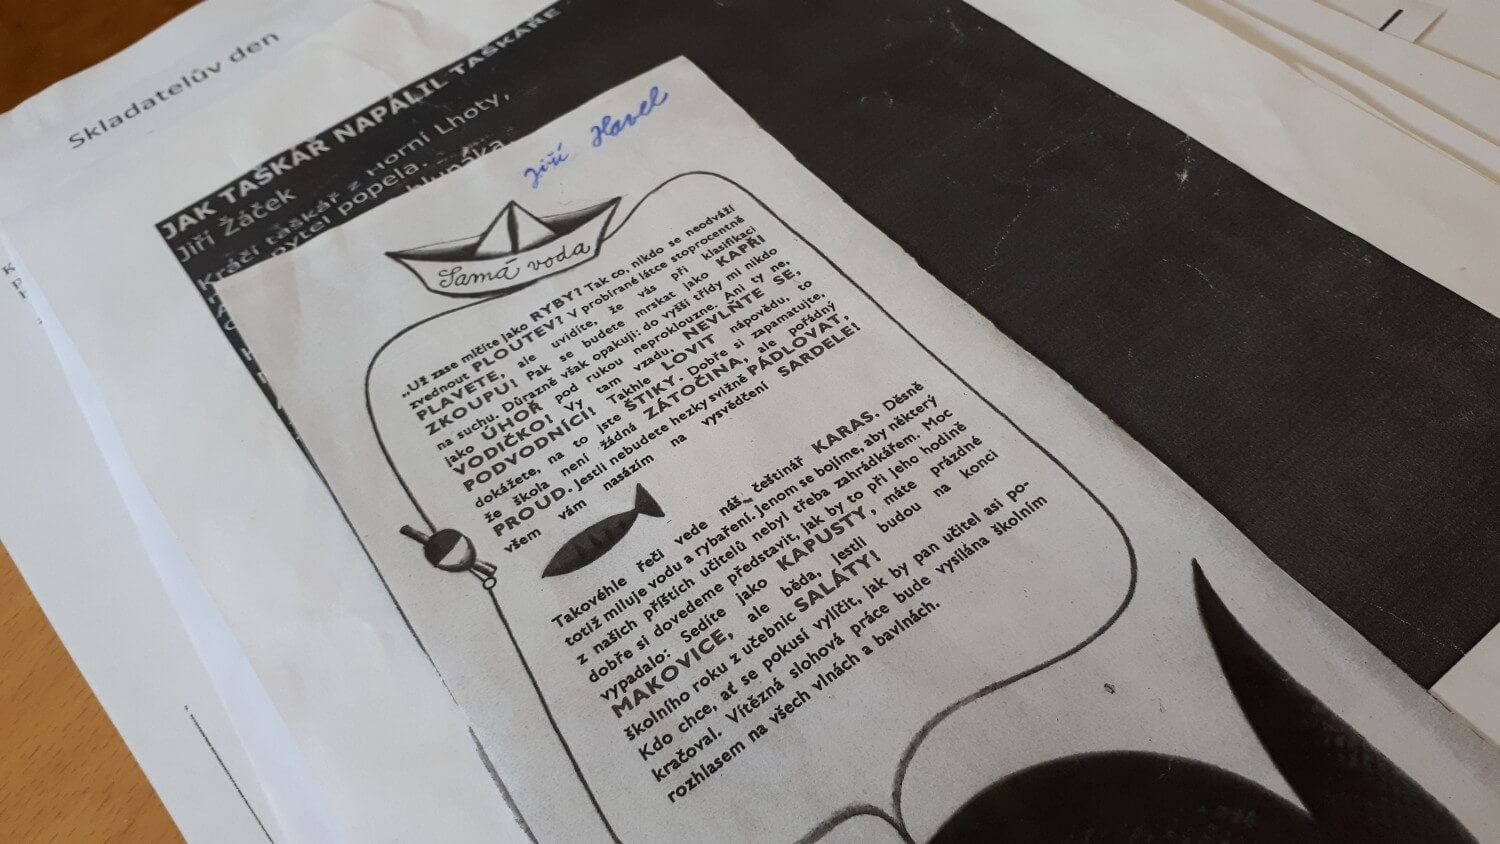 Skladatelův den
JAK TAŠKÁŘ NAPÁLIL TAŠKÁŘE
Jiří Žáček
Kráčí taškář z Horní Lhoty,
pytel popela.
hlupáka
Jiří Havel
Samá voda
„Už zase mlčíte jako RYBY? Tak co, nikdo se neodváží
zvednout PLOUTEV? V probírané látce stoprocentně
PLAVETE, ale uvidíte, že vás při klasifikaci
ZKOUPU! Pak se budete mrskat jako KAPŘI
na suchu. Důrazně však opakuji: do vyšší třídy mi nikdo
jako ÚHOŘ pod rukou neproklouzne. Ani ty ne,
VODIČKO! Vy tam vzadu, NEVLŇTE SE,
PODVODNÍCI! Takhle LOVIT nápovědu, to
dokážete, na to jste ŠTIKY. Dobře si zapamatujte,
že škola není žádná ZÁTOČINA, ale pořádný
PROUD. Jestli nebudete hezky svižně PÁDLOVAT,
všem vám nasázím na vysvědčení SARDELE!
Takovéhle řeči vede náš češtinář KARAS. Děsně
totiž miluje vodu a rybaření. Jenom se bojíme, aby některý
z našich příštích učitelů nebyl třeba zahrádkářem. Moc
dobře si dovedeme představit, jak by to při jeho hodině
vypadalo: Sedíte jako KAPUSTY, máte prázdné
MAKOVICE, ale běda, jestli budou na konci
školního roku z učebnic SALÁTY!
Kdo chce, ať se pokusí vylíčit, jak by pan učitel asi po-
kračoval. Vítězná slohová práce bude vysílána školním
rozhlasem na všech vlnách a bavlnách.